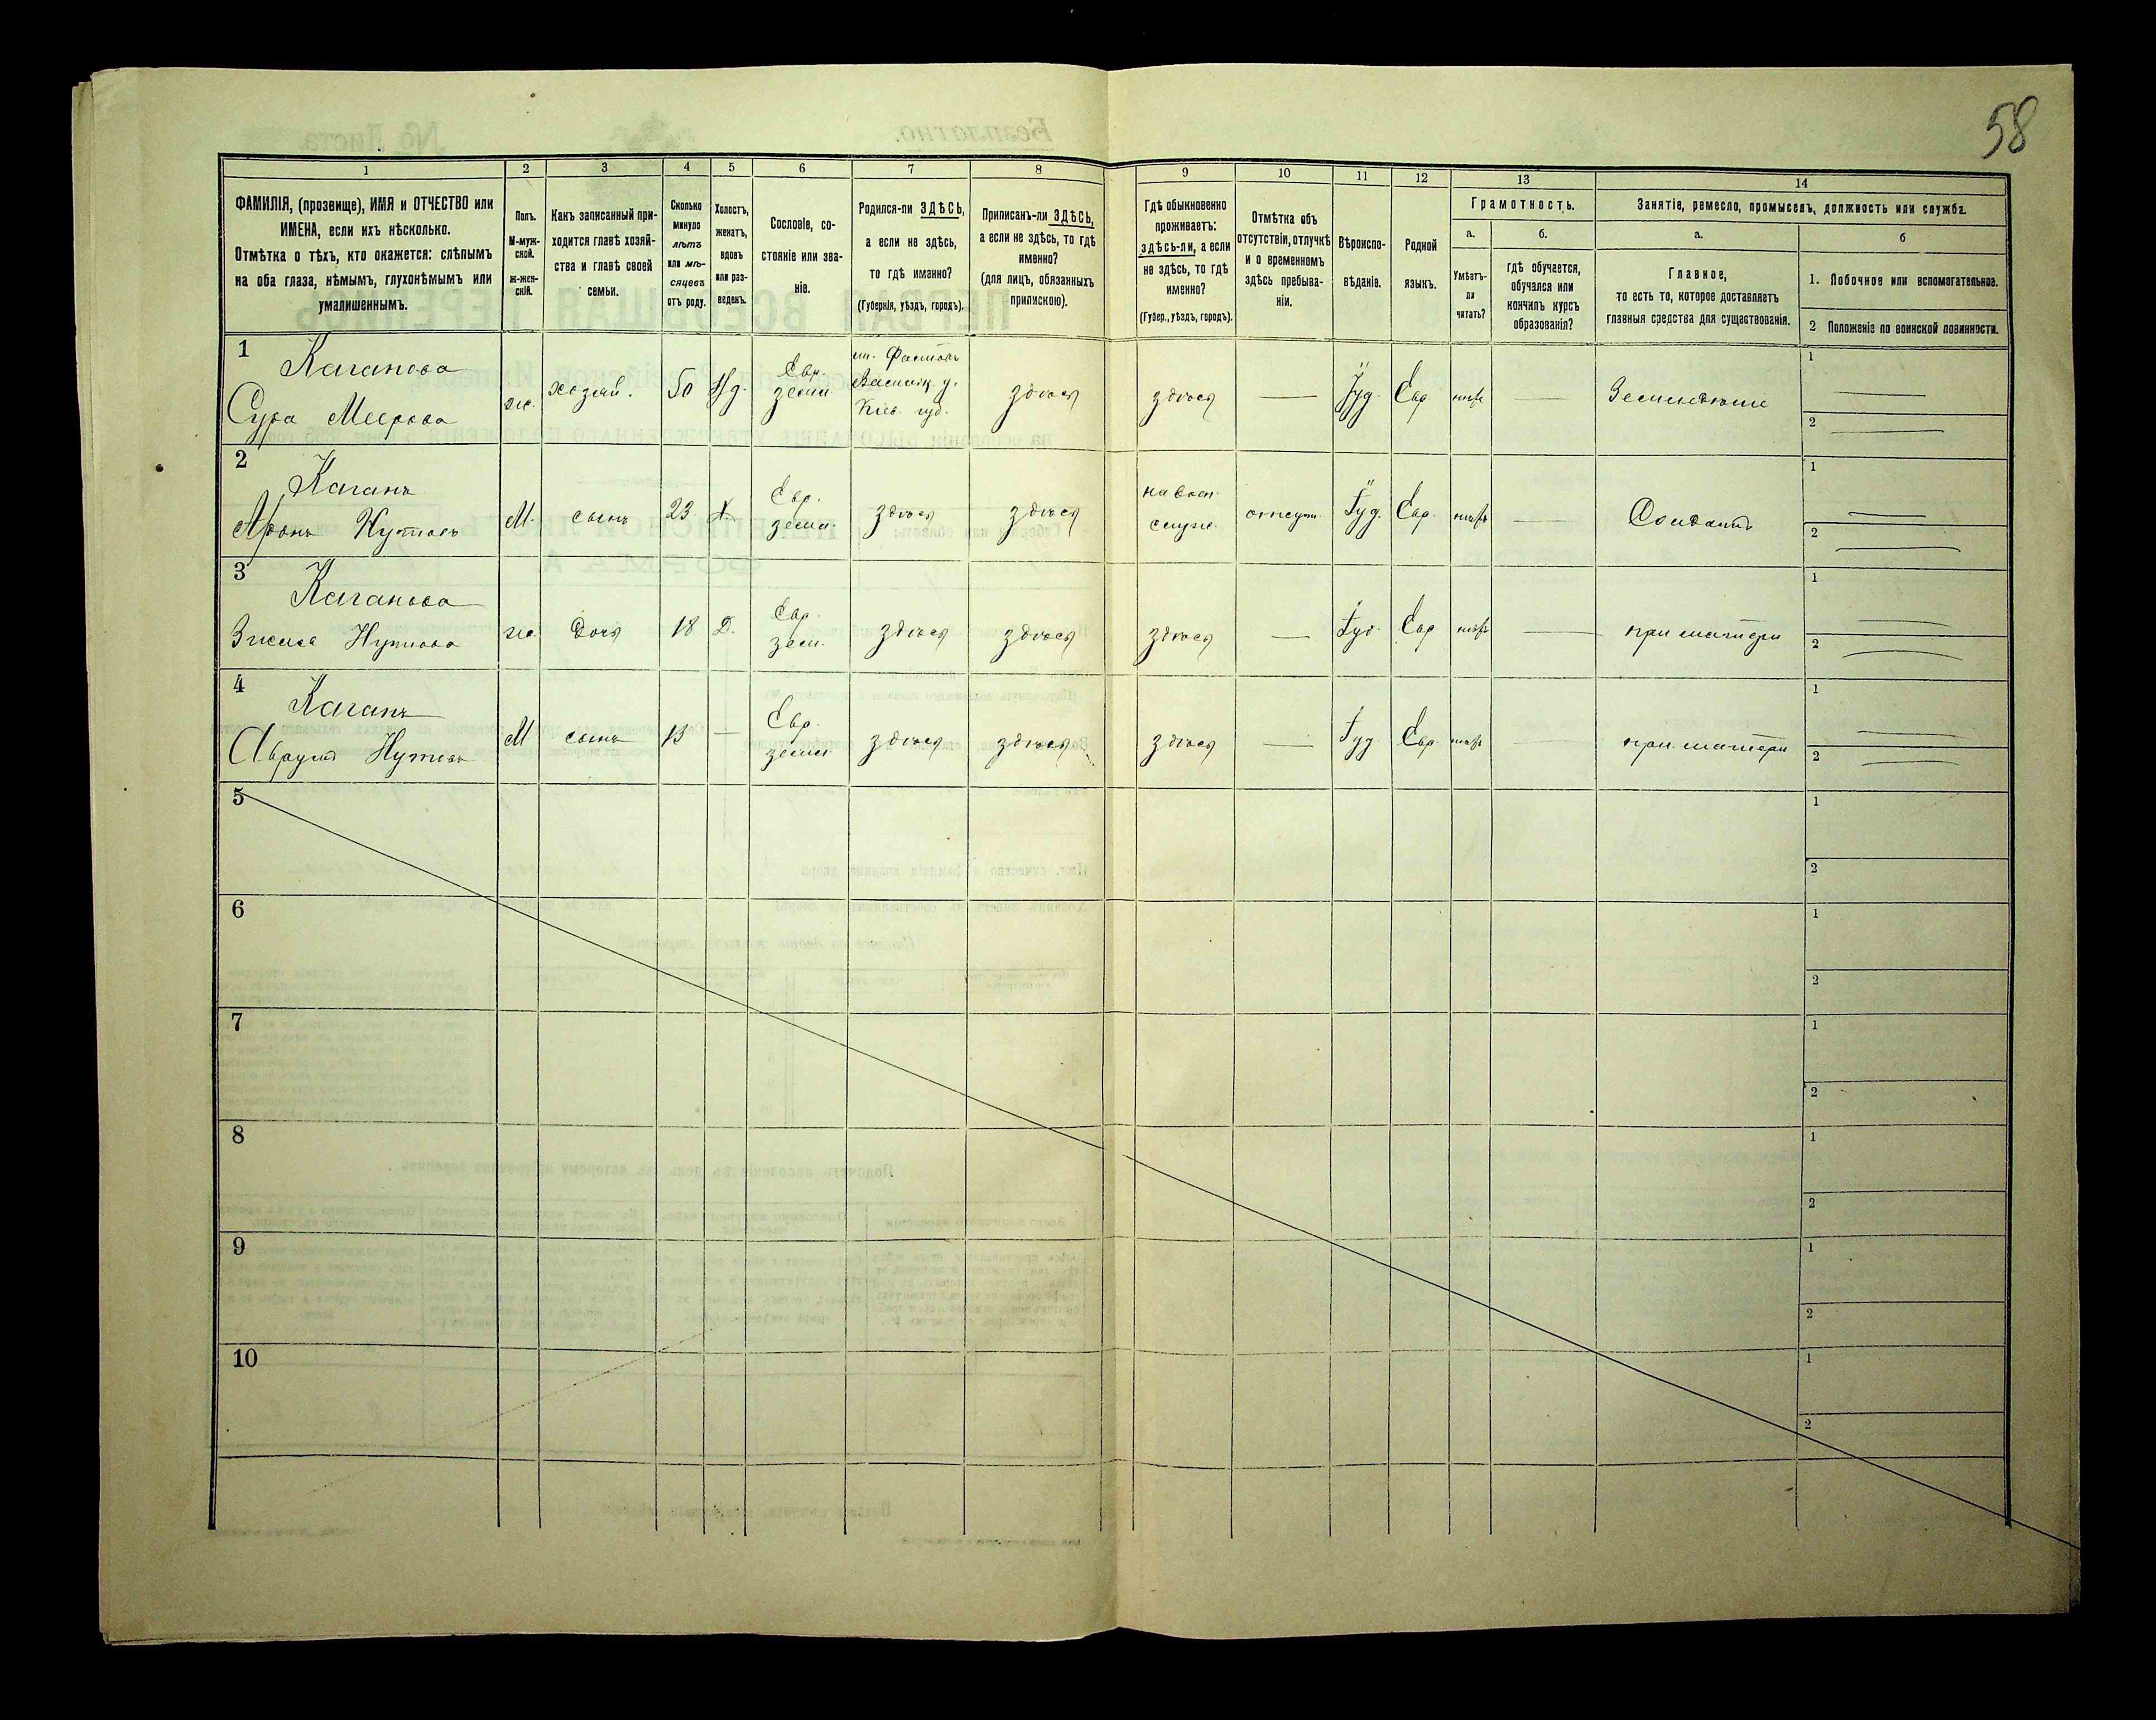 58
1
2
3
4
5
6
7
8
9
10
11
12
13
14
ФАМИЛІЯ, (прозвище), ИМЯ и ОТЧЕСТВО или
ИМЕНА, если ихъ нѣсколько.
Отмѣтка о тѣхъ, кто окажется: слѣпымъ
на оба глаза, нѣмымъ, глухонѣмымъ или
умалишеннымъ.
Полъ.
М-муж-
ской.
ж-жен-
скій.
Какъ записанный при-
ходится главѣ хозяй-
ства и главѣ своей
семьи.
Сколько
минуло
лѣтъ
или мѣ-
сяцевъ
отъ роду.
Холостъ,
женатъ,
вдовъ
или раз-
веденъ.
Сословіе, со-
стояніе или зва-
ніе.
Родился-ли ЗДѢСЬ,
а если не здѣсь,
то гдѣ именно?
(Губернія, уѣздъ, городъ).
Приписанъ-ли ЗДѢСЬ,
а если не здѣсь, то гдѣ
именно?
(для лицъ, обязанныхъ
припискою).
Гдѣ обыкновенно
проживаетъ:
здѣсь-ли, а если
не здѣсь, то гдѣ
именно?
(Губер., уѣздъ, городъ).
Отмѣтка объ
отсутствіи, отлучкѣ
и о временномъ
здѣсь пребыва-
ніи.
Вѣроиспо-
вѣданіе.
Родной
языкъ.
Грамотность.
а.
Умѣетъ-
ли
читать?
б.
гдѣ обучается,
обучался или
кончилъ курсъ
образованія?
Занятіе, ремесло, промыселъ, должность или служба.
а.
Главное,
то есть то, которое доставляетъ
главныя средства для существованія.
б
1. Побочное или вспомогательное.
2 Положеніе по воинской повинности.
1
Каганова
Сура Меерова
же.
хозяй.
50
Евр.
земл.
м. Фастовъ
Васильк. у.
Кіев. губ.
здѣсь
здѣсь
Іуд.
Евр.
Земледѣліе
1
2
2
Каганъ
Аронъ Нутовъ
М.
сынъ
23
Х
Евр.
земл.
здѣсь
здѣсь
на воен.
служ.
отсут.
Іуд.
Евр.
Солдатъ
1
2
3
Каганова
Нутова
же.
дочь
18
Д.
Евр.
зем.
здѣсь
здѣсь
здѣсь
Іуд.
Евр
при матери
1
2
4
Каганъ
Аврумъ Нутовъ
М
сынъ
13
Евр.
земл
здѣсь
здѣсь
здѣсь
Іуд
Евр.
при матери
1
2
5
1
2
6
1
2
7
1
2
8
1
2
9
1
2
10
1
2